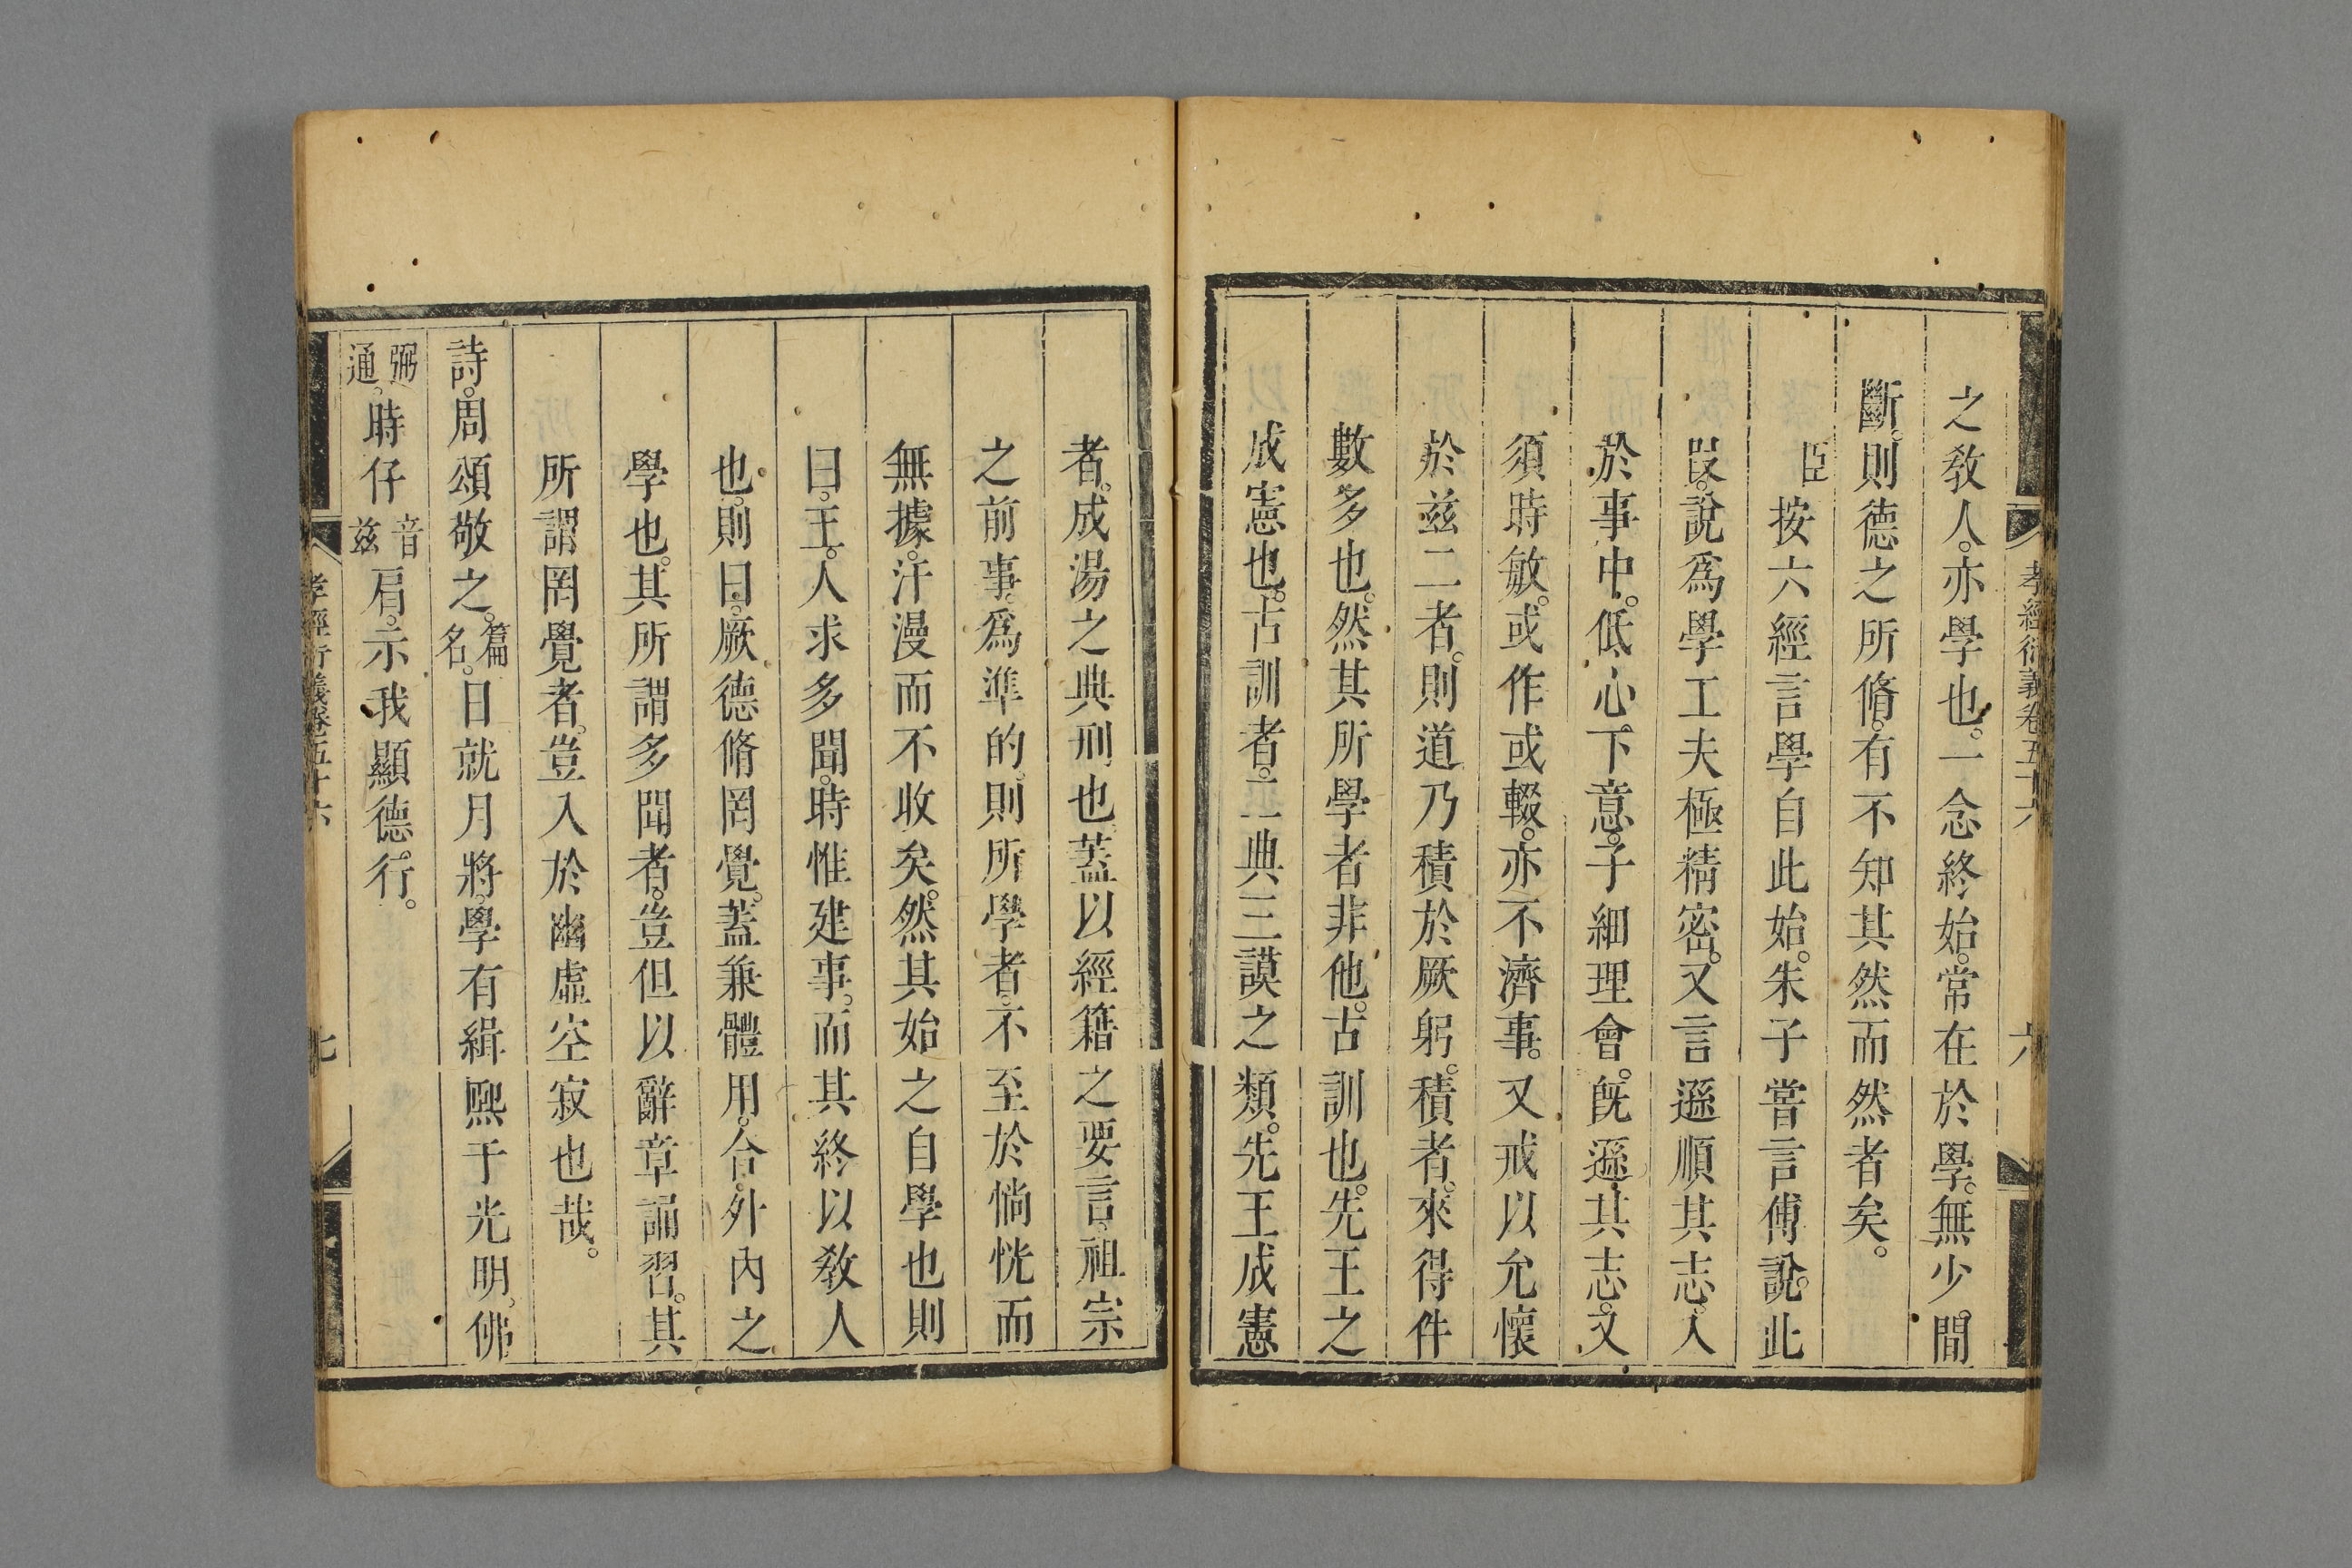 孝經衍義卷五十六
六
之敎人。亦學也。一念終始。常在於學。無少間
斷。則德之所脩。有不知其然而然者矣。
臣按六經言學自此始。朱子嘗言傅說。此
段。說爲學工夫極精密。又言遜順其志。入
於事中。低心下意。子細理會。旣遜其志。又
須時敏。或作或輟。亦不濟事。又戒以允懷
於兹二者。則道乃積於厥躬。積者。來得件
數多也。然其所學者非他。古訓也。先王之
成憲也。古訓者。二典三謨之類。先王成憲
者。成湯之典刑也。蓋以經籍之要言。祖宗
之前事。爲準的。則所學者。不至於惝恍而
無據。汗漫而不收矣。然其始之自學也則
曰。王。人求多聞。時惟建事。而其終以敎人
也。則曰。厥德脩罔覺。蓋兼體用。合外內之
學也。其所謂多聞者。豈但以辭章誦習。其
所謂罔覺者。豈入於幽虛空寂也哉。
詩。周頌敬之。篇名。日就月將。學有緝熙于光明。佛
弼通。時仔音兹肩。示我顯德。行。
孝經衍義卷五十六
七